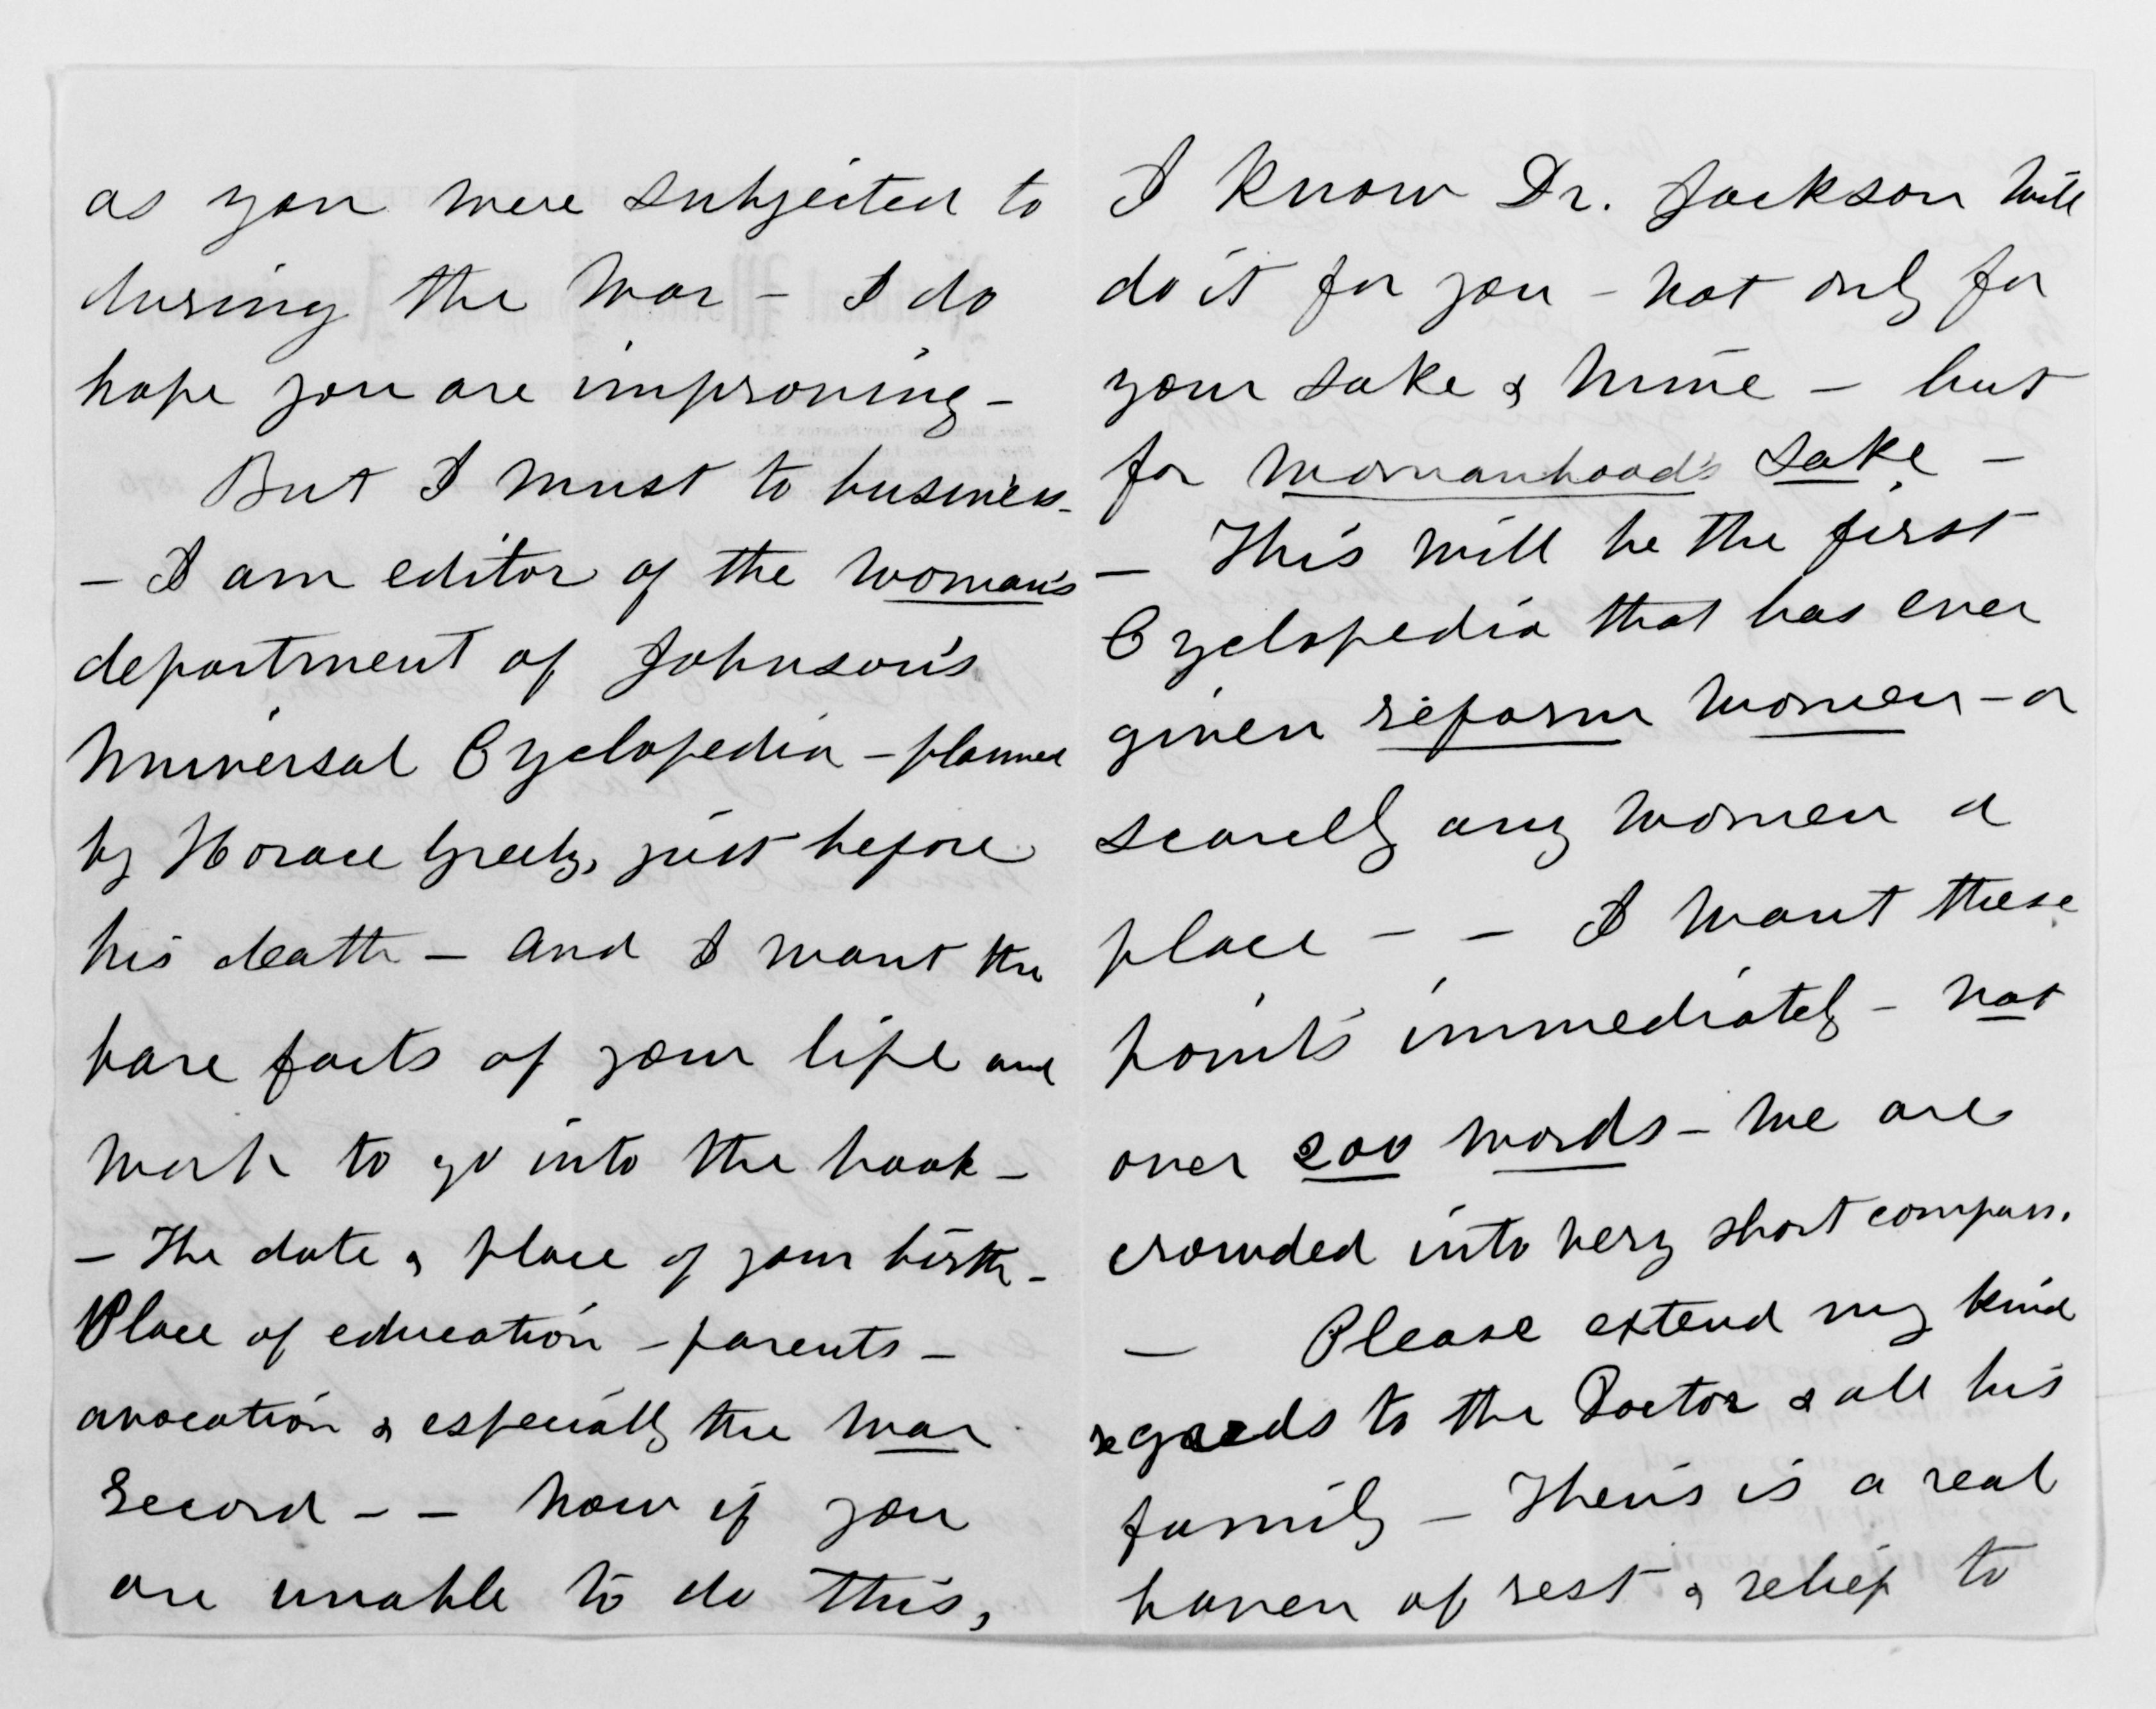 as you were subjected to
during the War - I do
hope you are improving -
But I must to business -
- I am editor of the woman's
department of Johnson's
Universal Cyclopedia - planned
by Horace Greely, just before
his death - and I want the
bare facts of your life and
work to go into the book -
- The date & place of your birth -
Place of education - parents -
avocation & especially the war
record - - Now if you
are unable to do this,
I know Dr. Jackson will
do it for you - not only for
your sake & mine - but
for womanhood's sake -
- This will be the first
Cyclopedia that has ever
given reform women - or
scarcely any women a
place - - I want these
points immediately - not
over 200 words - we are
crowded into very short compass.
- Please extend my kind
regards to the Doctor & all his
family - Theirs is a real
haven of rest & relief to